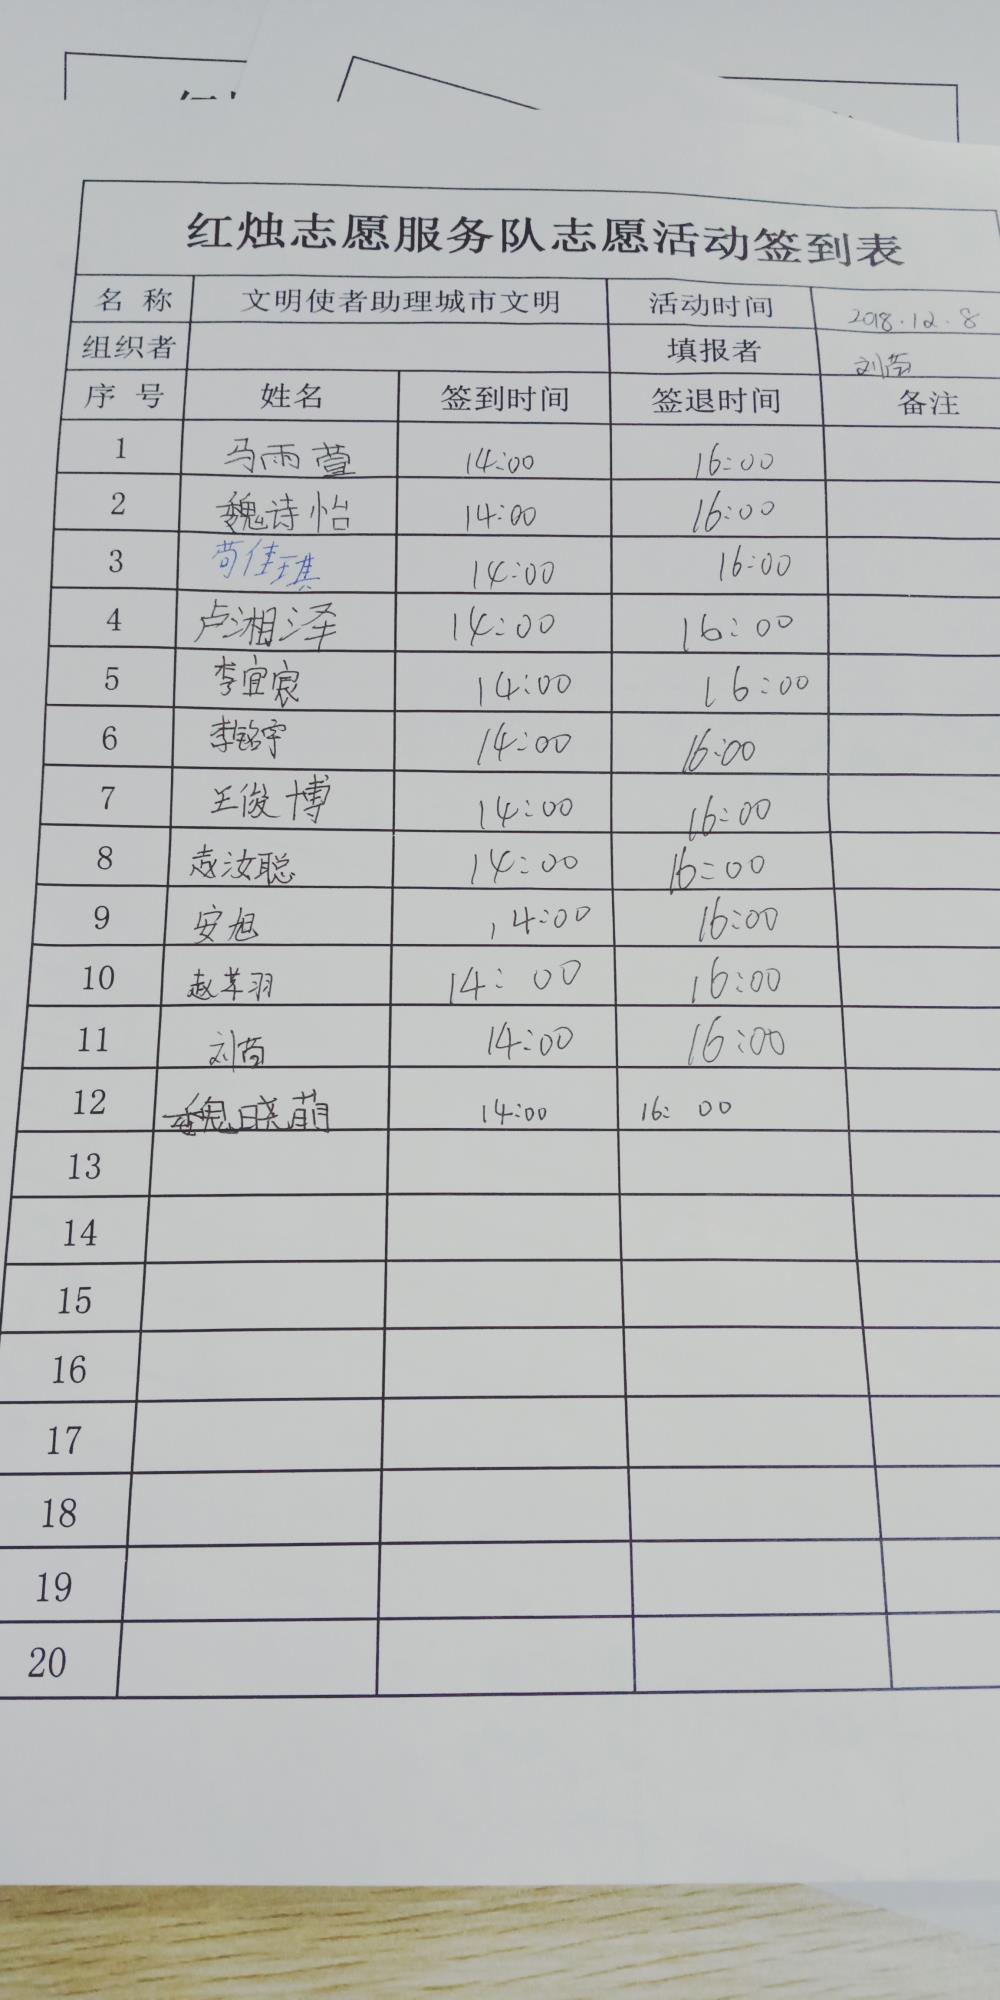 红烛志愿服务队志愿活动签到表
名 称 文明使者助理城市文明 活动时间 2018.12.8
组织者 填报者 刘茵
序 号 姓名 签到时间 签退时间 备注
1 马雨萱 14:00 16:00
2 魏诗怡 14:00 16:00
3 苟佳琪 14:00 16:00
4 卢湘泽 14:00 16:00
5 李宜宸 14:00 16:00
6 李铭宇 14:00 16:00
7 王俊博 14:00 16:00
8 赵汝聪 14:00 16:00
9 安旭 14:00 16:00
10 赵羽 14:00 16:00
11 刘茵 14:00 16:00
12 魏晓萌 14:00 16:00
13
14
15
16
17
18
19
20